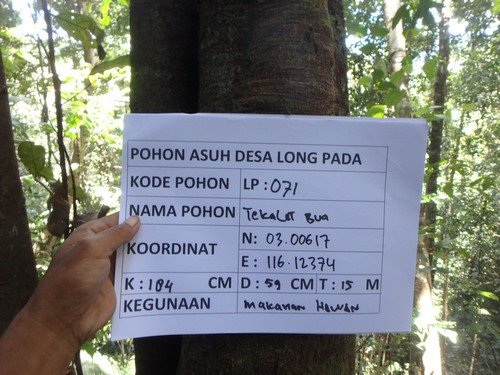 POHON ASUH DESA LONG PADA
KODE POHON LP : 071
NAMA POHON Tekalot Bua
KOORDINAT N: 03.00617
E: 116.12374
K : 184 CM D : 59 CM T : 15 M
KEGUNAAN makanan Hewan